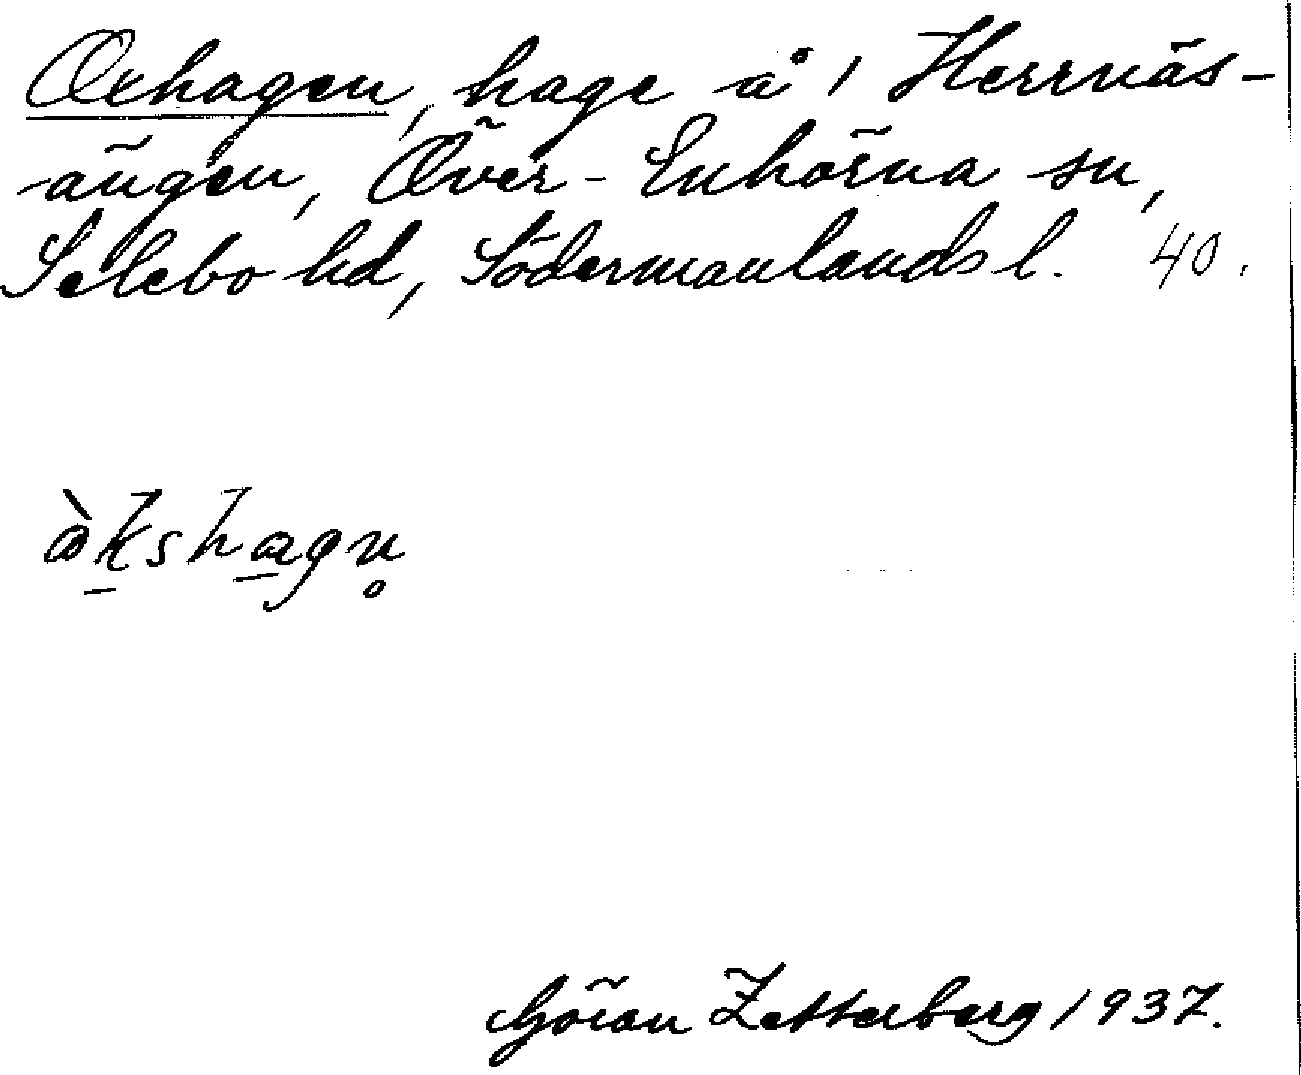 Oxhagen, hage å 1 Herrnäs-
ängen, Över-Enhörna sn,
Selebo hd, Södermanlands l. 40.
ɷ̀k̠shɑ̠gn̥
Göran Zetterberg 1937.